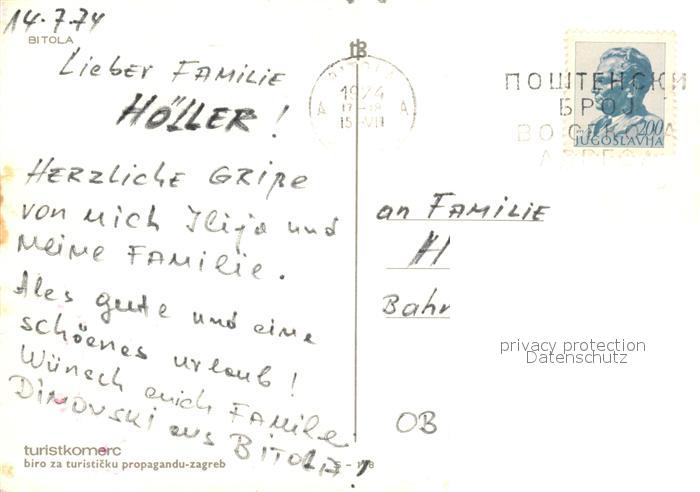 14.7.74
BITOLA
Lieber FAMILIE
HÖLLER!
HERZLICHE GRIPE
von mich Ilija und
MEINE FAMILIE.
Ales gute und eine
schöenes urlaub!
Wünsch auich FAMILE
DIMOVSKI aus BITOLA!
turistkomerc
biro za turističku propagandu-zagreb
tB
BITOLA
1974
17-18
A A
15-VII
ПОШТЕНСКИ
БРОЈ
ВО СЕКОЈА
АДРЕСА
200
JUGOSLAVIJA
an FAMILIE
H
Bahr
privacy protection
Datenschutz
OB